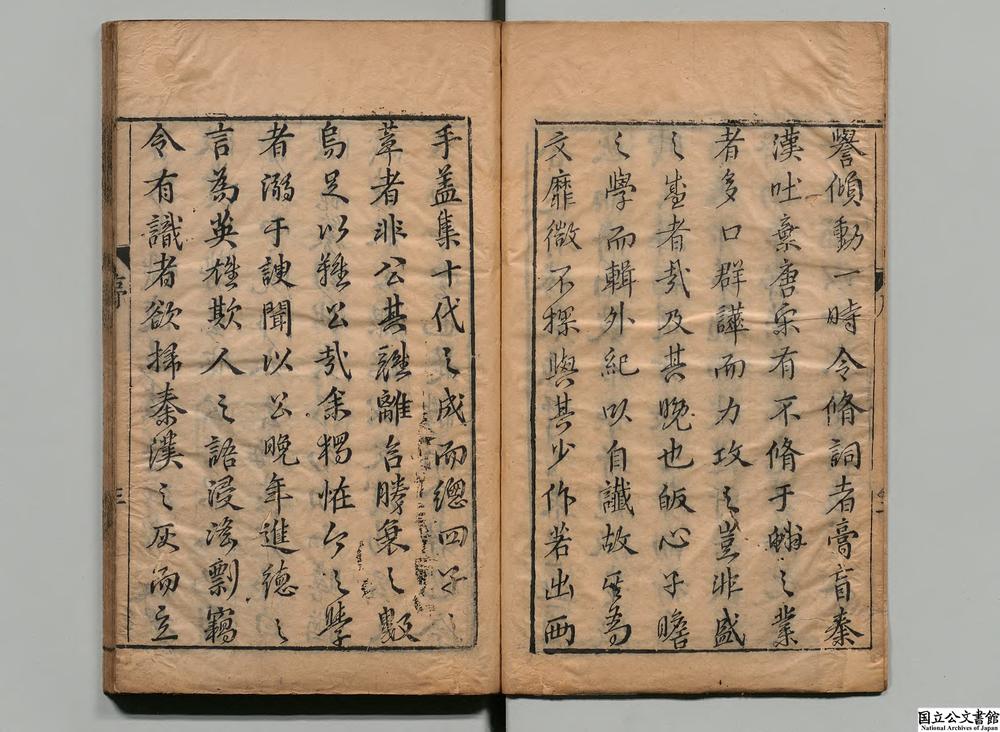 譽傾動一時令脩詞者膏盲秦
漢吐棄唐宋有不脩于鱗之業
者多口群譁而力攻之豈非盛
之盛者哉及其晚也皈心子瞻
之學而輯外紀以自讖故其為
文靡微不探與其少作若出兩
手盖集十代之成而總四子之
萃者非公其誰離合勝之數
烏足以難公哉余獨恠今之學
者溺于諛聞以公晚年進德之
言為英雄欺人之語浸淫剽竊
令有識者欲掃秦漢之灰而立
序
三
国立公文書館
National Archives of Japan